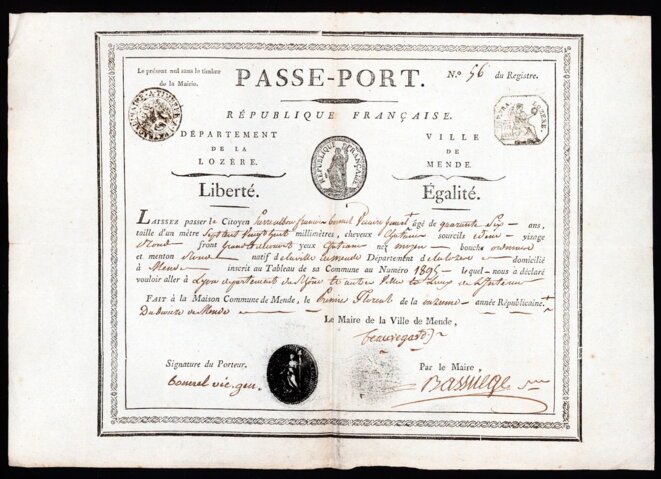 Le présent nul sans le timbre
de la Mairie.
PASSE-PORT.
N.º 56 du Registre.
RÉPUBLIQUE FRANÇAISE.
DÉPARTEMENT
DE LA
LOZÈRE.
VILLE
DE
MENDE.
RÉPUBLIQUE FRANÇAISE
LOZÈRE.
Liberté.
Égalité.
LAISSEZ passer le Citoyen âgé de quarante Six ans,
taille d'un mètre Sept cent vingt huit millimètres, cheveux sourcils visage
Rond front yeux nez moyen bouche ordinaire
et menton Rond natif de la ville de mende Département de la lozere domicilié
à Mende inscrit au Tableau de sa Commune au Numéro 1895 lequel nous a déclaré
vouloir aller à Lyon departement du Rhône et autres Villes
FAIT à la Maison Commune de Mende, le Premier floreal de la onzieme année Républicaine
Le Maire de la Ville de Mende,
Signature du Porteur.
Par le Maire,
bonnel vic. gen.